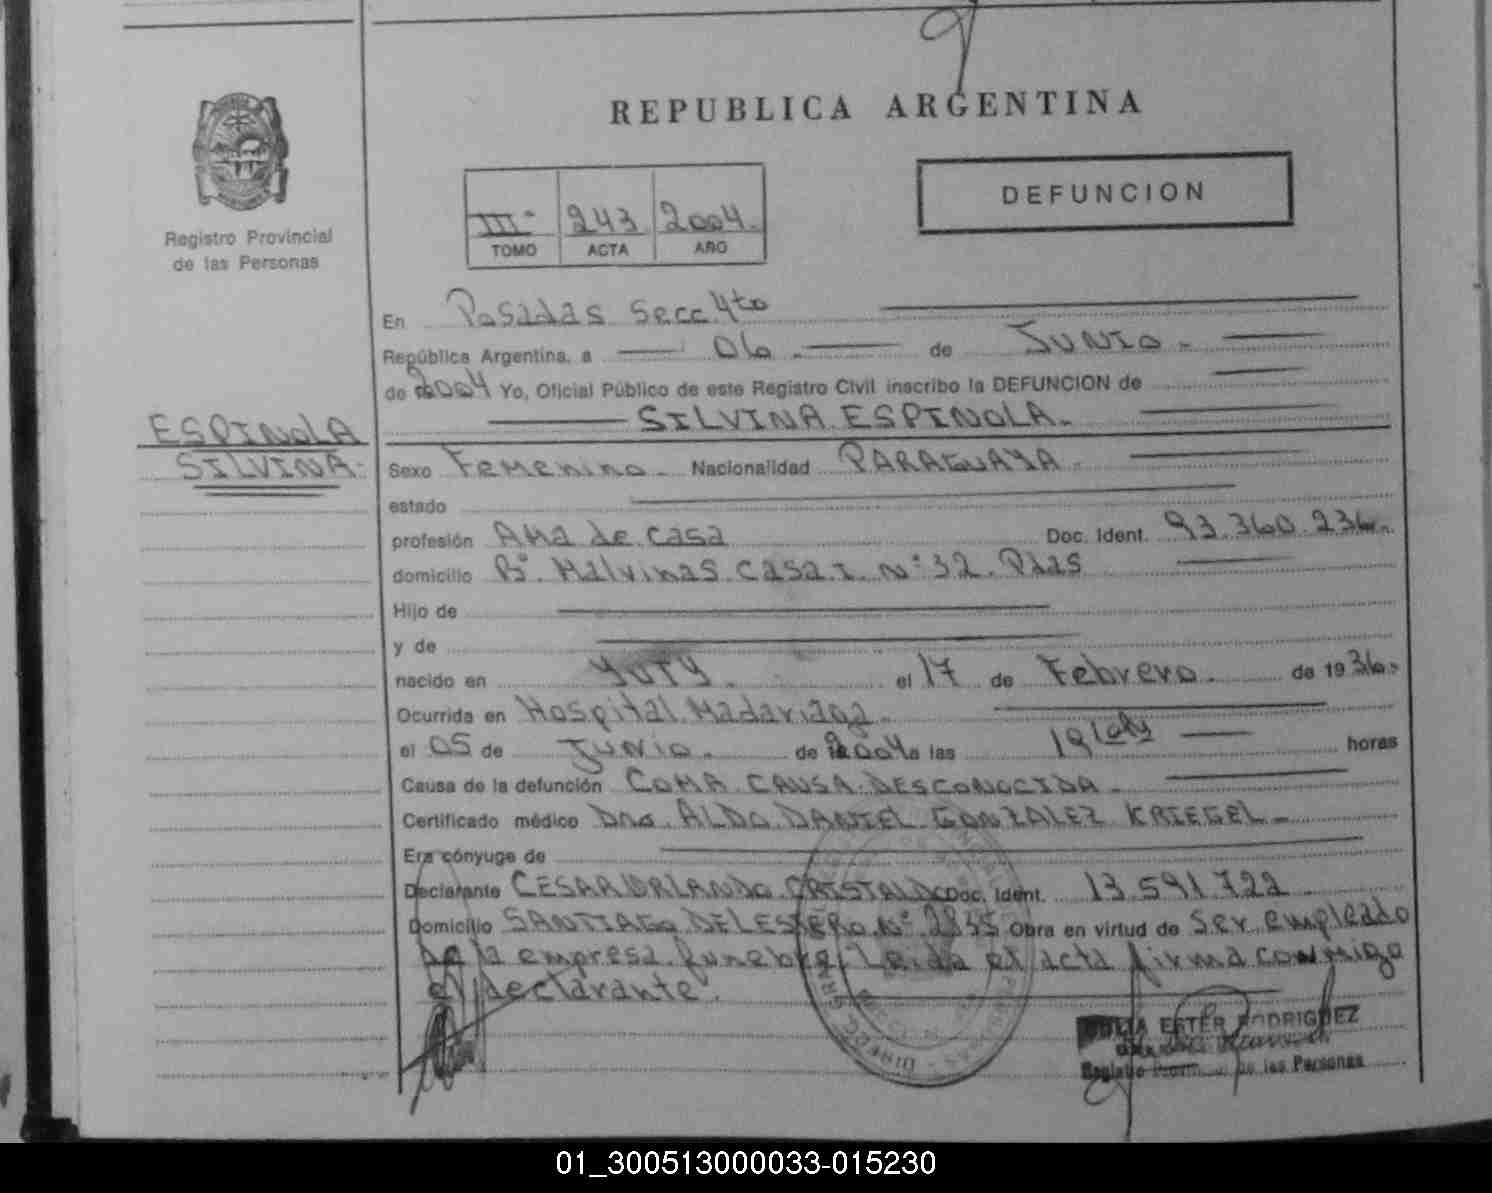 REPUBLICA ARGENTINA
DEFUNCION
III° 243 2004.
TOMO ACTA AÑO
Registro Provincial
de las Personas
En Posadas Secc 4to
República Argentina, a 06 de JUNIO
de 2004 Yo, Oficial Público de este Registro Civil inscribo la DEFUNCION de
SILVINA ESPINOLA.
ESPINOLA
SILVINA
Sexo Femenino Nacionalidad PARAGUAYA
estado
profesión Ama de casa Doc. Ident. 93.360.236
domicilio B° Malvinas casa I. N° 32. Pdas
Hijo de
y de
nacido en YUTY. el 17 de Febrero. de 1936.
Ocurrida en Hospital Madariaga
el 05 de JUNIO. de 2004 a las 19 horas
Causa de la defunción COMA CAUSA DESCONOCIDA
Certificado médico Dno. ALDO DANIEL GONZALEZ KRIEGEL
Era cónyuge de
Declarante CESAR ORLANDO CRISTALDO Doc. Ident. 13.591.722
Domicilio SANTIAGO DEL ESTERO N° 2835 Obra en virtud de ser empleado
de la empresa funebre. Leida el acta firma conmigo
el declarante.
ESTER RODRIGUEZ
de las Personas
01_300513000033-015230